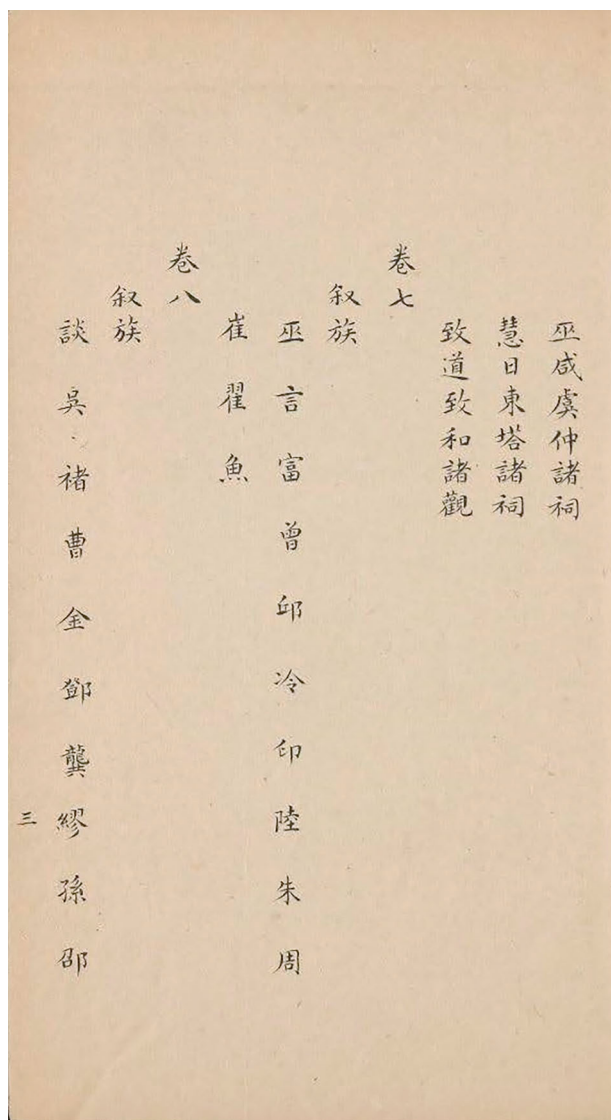 巫咸虞仲諸祠
慧日東塔諸祠
致道致和諸觀
卷七
叙族
巫言富曾邱冷印陸朱周
崔翟魚
卷八
叙族
談吳褚曹金鄧龔繆孫邵
三